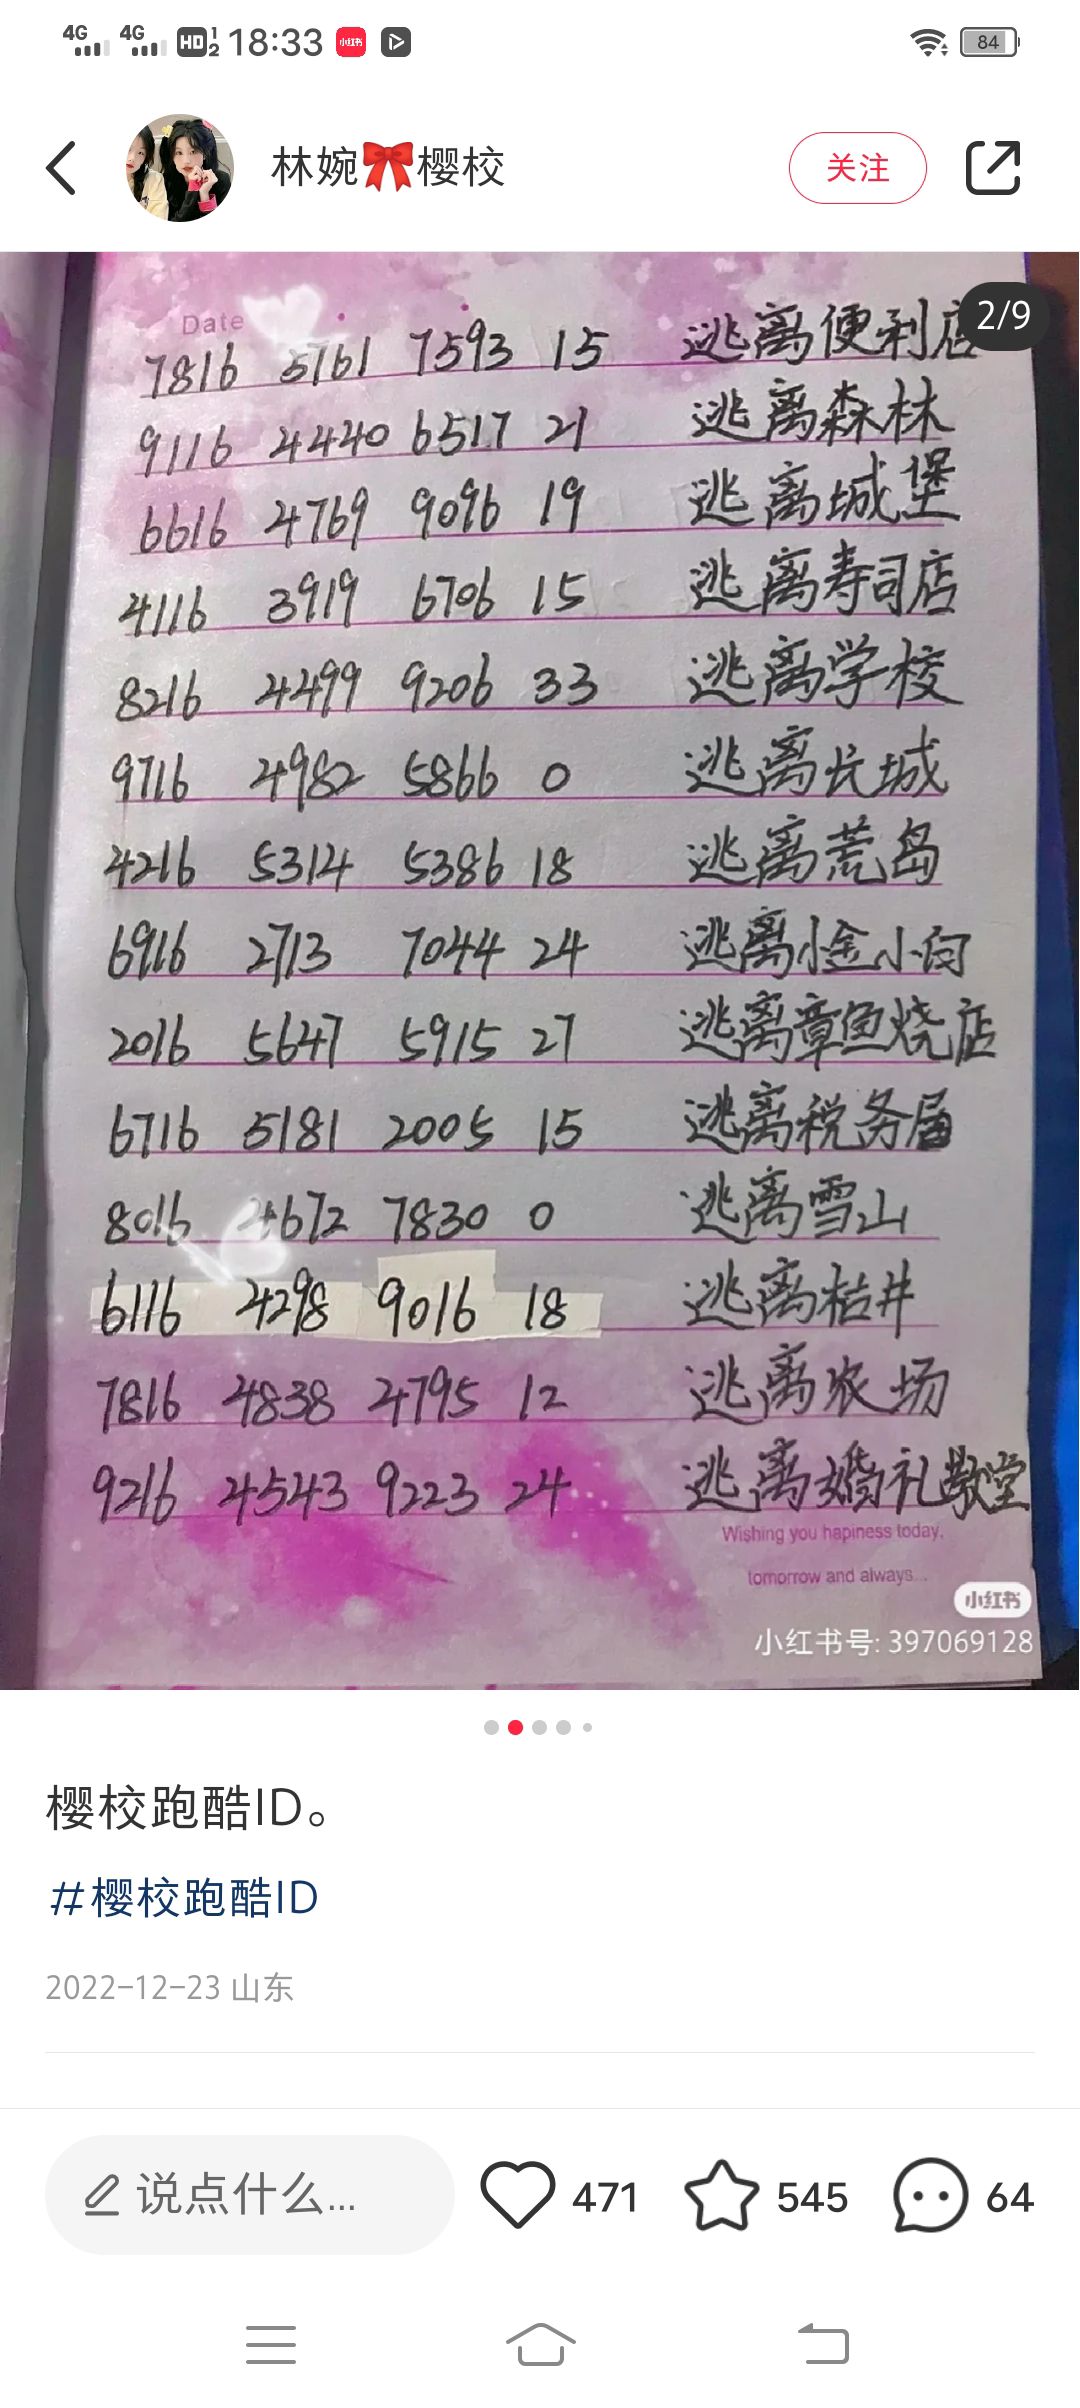 4G 4G HD 1 2 18:33 小红书 84
林婉🎀樱校 关注
2/9
Date
7816 5761 7593 15 逃离便利店
9116 4440 6517 21 逃离森林
6616 4769 9096 19 逃离城堡
4116 3919 6706 15 逃离寿司店
8216 4499 9206 33 逃离学校
9716 4982 5866 0 逃离长城
4216 5314 5386 18 逃离荒岛
6916 2713 7044 24 逃离小金小向
2016 5647 5915 27 逃离章鱼烧店
6716 5181 2005 15 逃离税务届
8016 4672 7830 0 逃离雪山
6116 4298 9016 18 逃离枯井
7816 4838 4795 12 逃离农场
9216 4543 9223 24 逃离婚礼教堂
Wishing you hapiness today,
tomorrow and always...
小红书
小红书号: 397069128
樱校跑酷ID。
#樱校跑酷ID
2022-12-23 山东
说点什么... 471 545 64